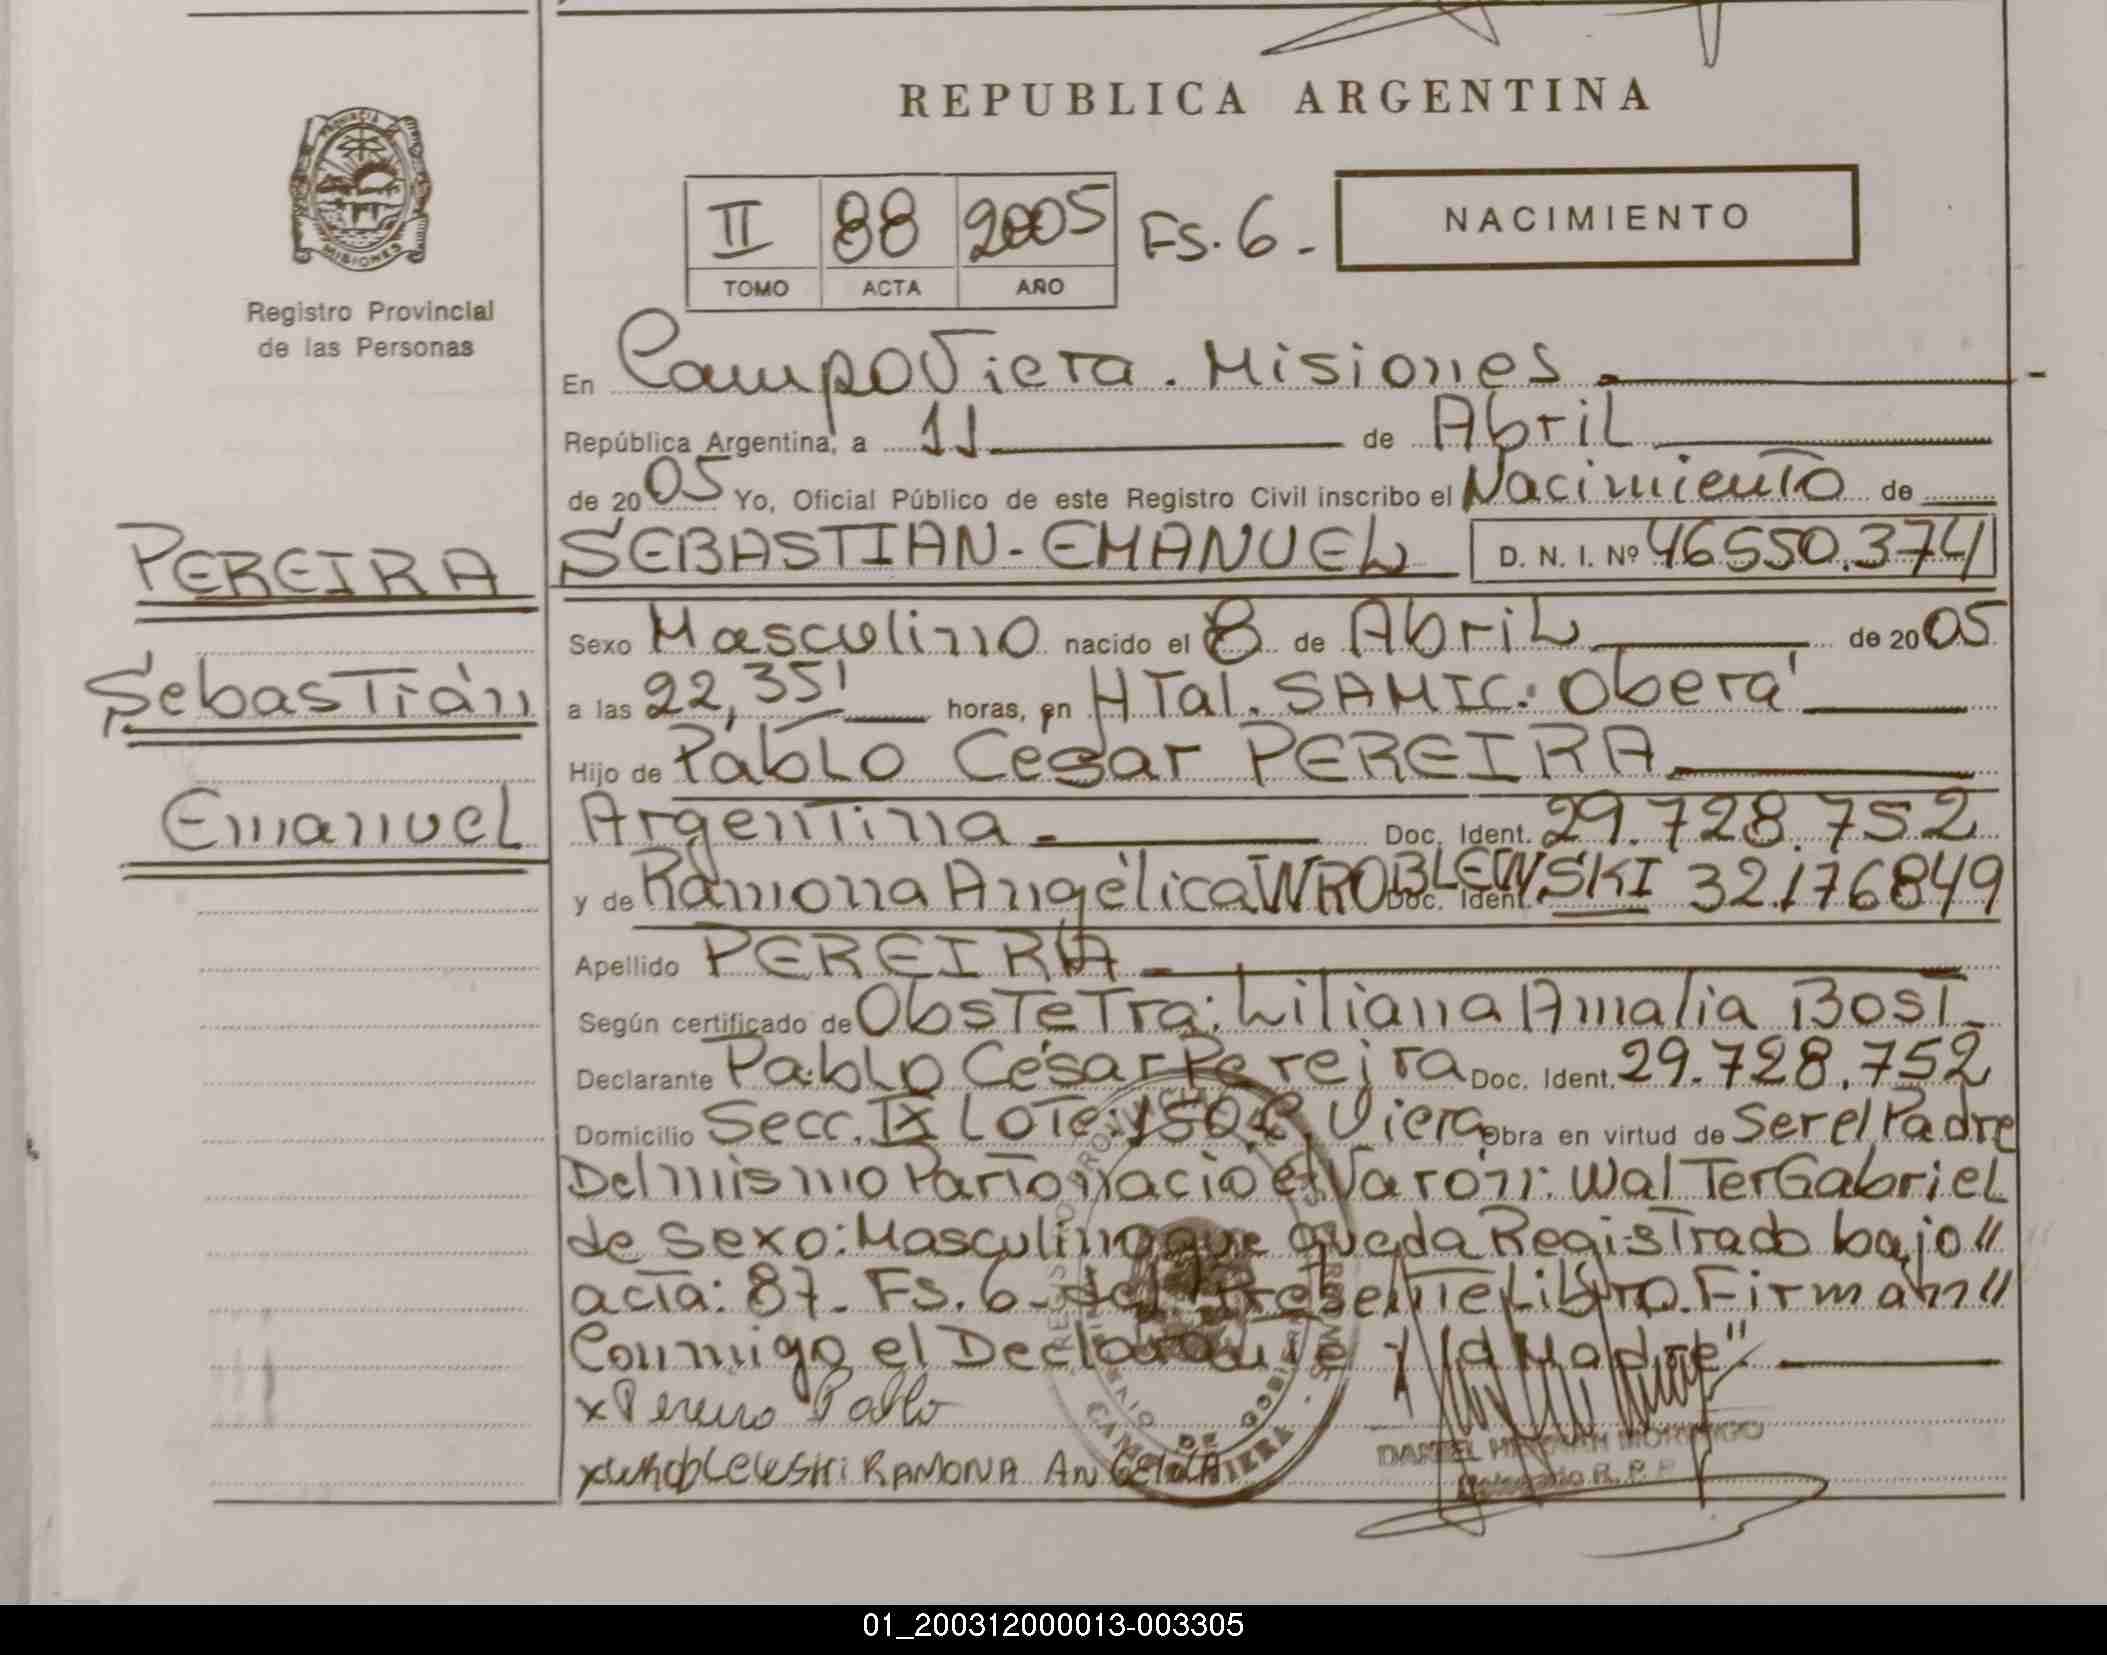 REPUBLICA ARGENTINA
PROVINCIA
MISIONES
Registro Provincial
de las Personas
II 88 2005 Fs. 6.-
TOMO ACTA AÑO
NACIMIENTO
En Campo Viera. Misiones.
República Argentina, a 11 de Abril
de 2005 Yo, Oficial Público de este Registro Civil inscribo el Nacimiento de
PEREIRA
Sebastián
Emanuel
SEBASTIAN-EMANUEL D. N. I. Nº 46550.374
Sexo Masculino nacido el 8 de Abril de 2005
a las 22,35' horas, en HTal. SAMIC. Oberá
Hijo de Pablo Cesar PEREIRA
Argentina.- Doc. Ident. 29.728.752
y de Ramona Angélica WROBLEWSKI Doc. Ident. 32.176849
Apellido PEREIRA.-
Según certificado de Obstetra: Liliana Amalia Bost-
Declarante Pablo César Pereira Doc. Ident. 29.728.752
Domicilio Secc. IX Lote 150.C. Viera Obra en virtud de Ser el Padre
Del mismo Parto nació el Varón: Walter Gabriel
de sexo: Masculino que queda Registrado bajo "
acta: 87- Fs. 6- del Presente Libro. Firman "
Conmigo el Declarante y la Madre"
x Pereira Pablo
x WROBLEWSKI RAMONA ANGELICA
Delegado R. P. P.
01_200312000013-003305